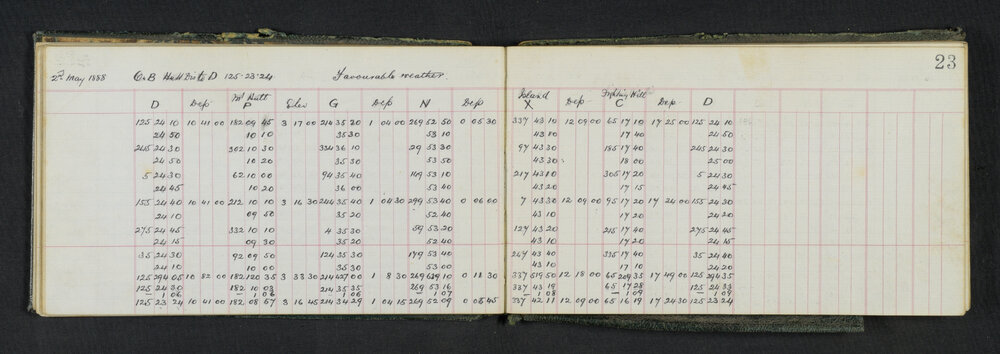 23
2nd May 1888 C & B Hutt Dist D 125·23·24 Favourable weather.
D Dep Mt Hutt P Elev G Dep N Dep Island X Dep Fighting Hill C Dep D
125 24 10 10 41 00 182 09 45 3 17 00 214 35 30 1 04 00 269 52 50 0 05 30 337 43 10 12 09 00 65 17 10 17 25 00 125 24 10
24 50 10 10 35 30 53 10 43 10 17 40 24 50
245 24 30 302 10 30 334 36 10 29 53 30 97 43 30 185 17 40 245 24 30
24 50 10 20 35 30 53 50 43 30 18 00 25 00
5 24 30 62 10 00 94 35 40 149 53 10 217 43 20 305 17 20 5 24 30
24 45 10 20 36 00 53 40 43 20 17 15 24 45
155 24 40 10 41 00 212 10 10 3 16 30 244 35 40 1 04 30 299 53 40 0 06 00 7 43 30 12 09 00 95 17 20 17 24 00 155 24 30
24 10 09 50 35 20 52 40 43 10 17 20 24 20
275 24 45 332 10 10 4 35 30 59 53 20 127 43 20 215 17 40 275 24 45
24 15 09 30 35 20 52 40 43 10 17 20 24 15
35 24 30 92 09 50 124 35 30 179 53 40 247 43 40 335 17 40 35 24 40
24 10 10 00 35 30 53 00 43 10 17 10 24 20
125 294 05 10 82 00 182 120 35 3 33 30 214 427 00 1 8 30 269 639 10 0 11 30 337 519 50 12 18 00 65 209 35 17 49 00 125 294 35
125 24 30 182 10 03 214 35 35 269 53 16 337 43 19 65 17 28 125 24 33
1 06 1 06 1 06 1 07 1 08 1 09 1 09
125 23 24 10 41 00 182 08 57 3 16 45 214 34 29 1 04 15 269 52 09 0 05 45 337 42 11 12 09 00 65 16 19 17 24 30 125 23 24